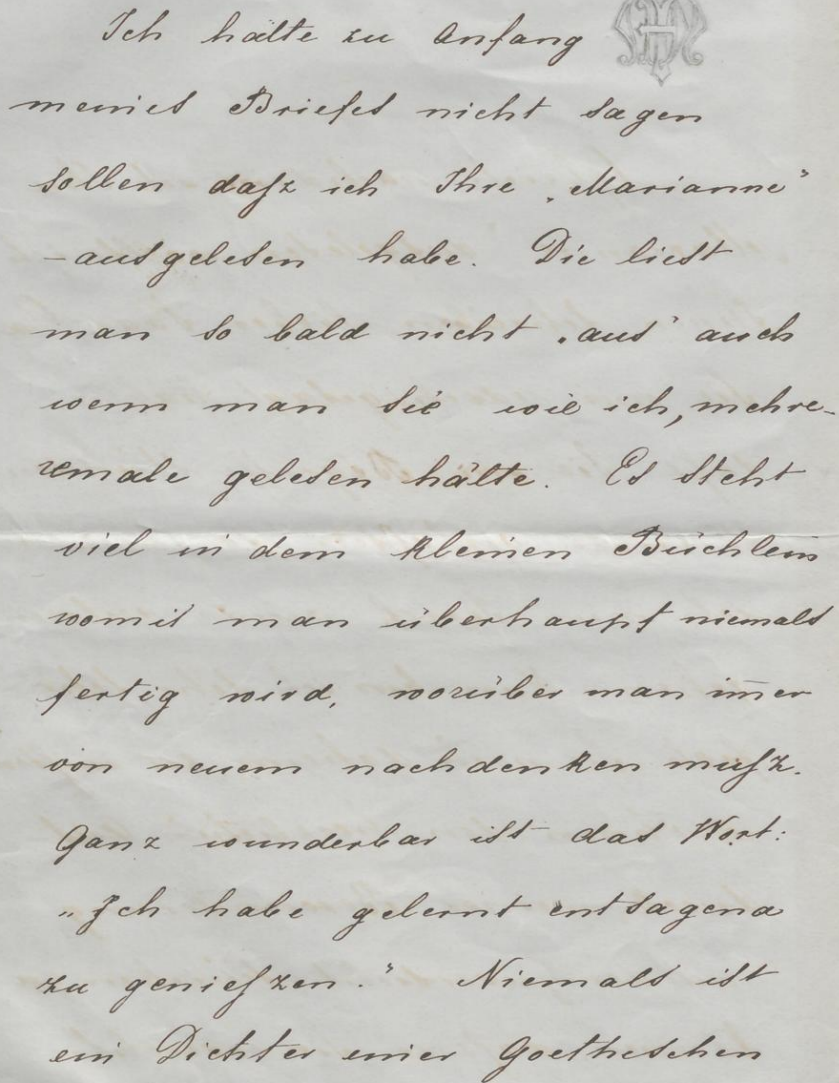 Ich hätte zu Anfang
meines Briefes nicht sagen
sollen dasz ich Ihre „Marianne“
- ausgelesen habe. Die liest
man so bald nicht „aus“ auch
wenn man sie wie ich, mehre-
remale gelesen hätte. Es steht
viel in dem kleinen Büchlein
womit man überhaupt niemals
fertig wird, worüber man im̅er
von neuem nachdenken musz.
Ganz wunderbar ist das Wort:
„Ich habe gelernt entsagend
zu genieszen.“ Niemals ist
ein Dichter einer Goetheschen